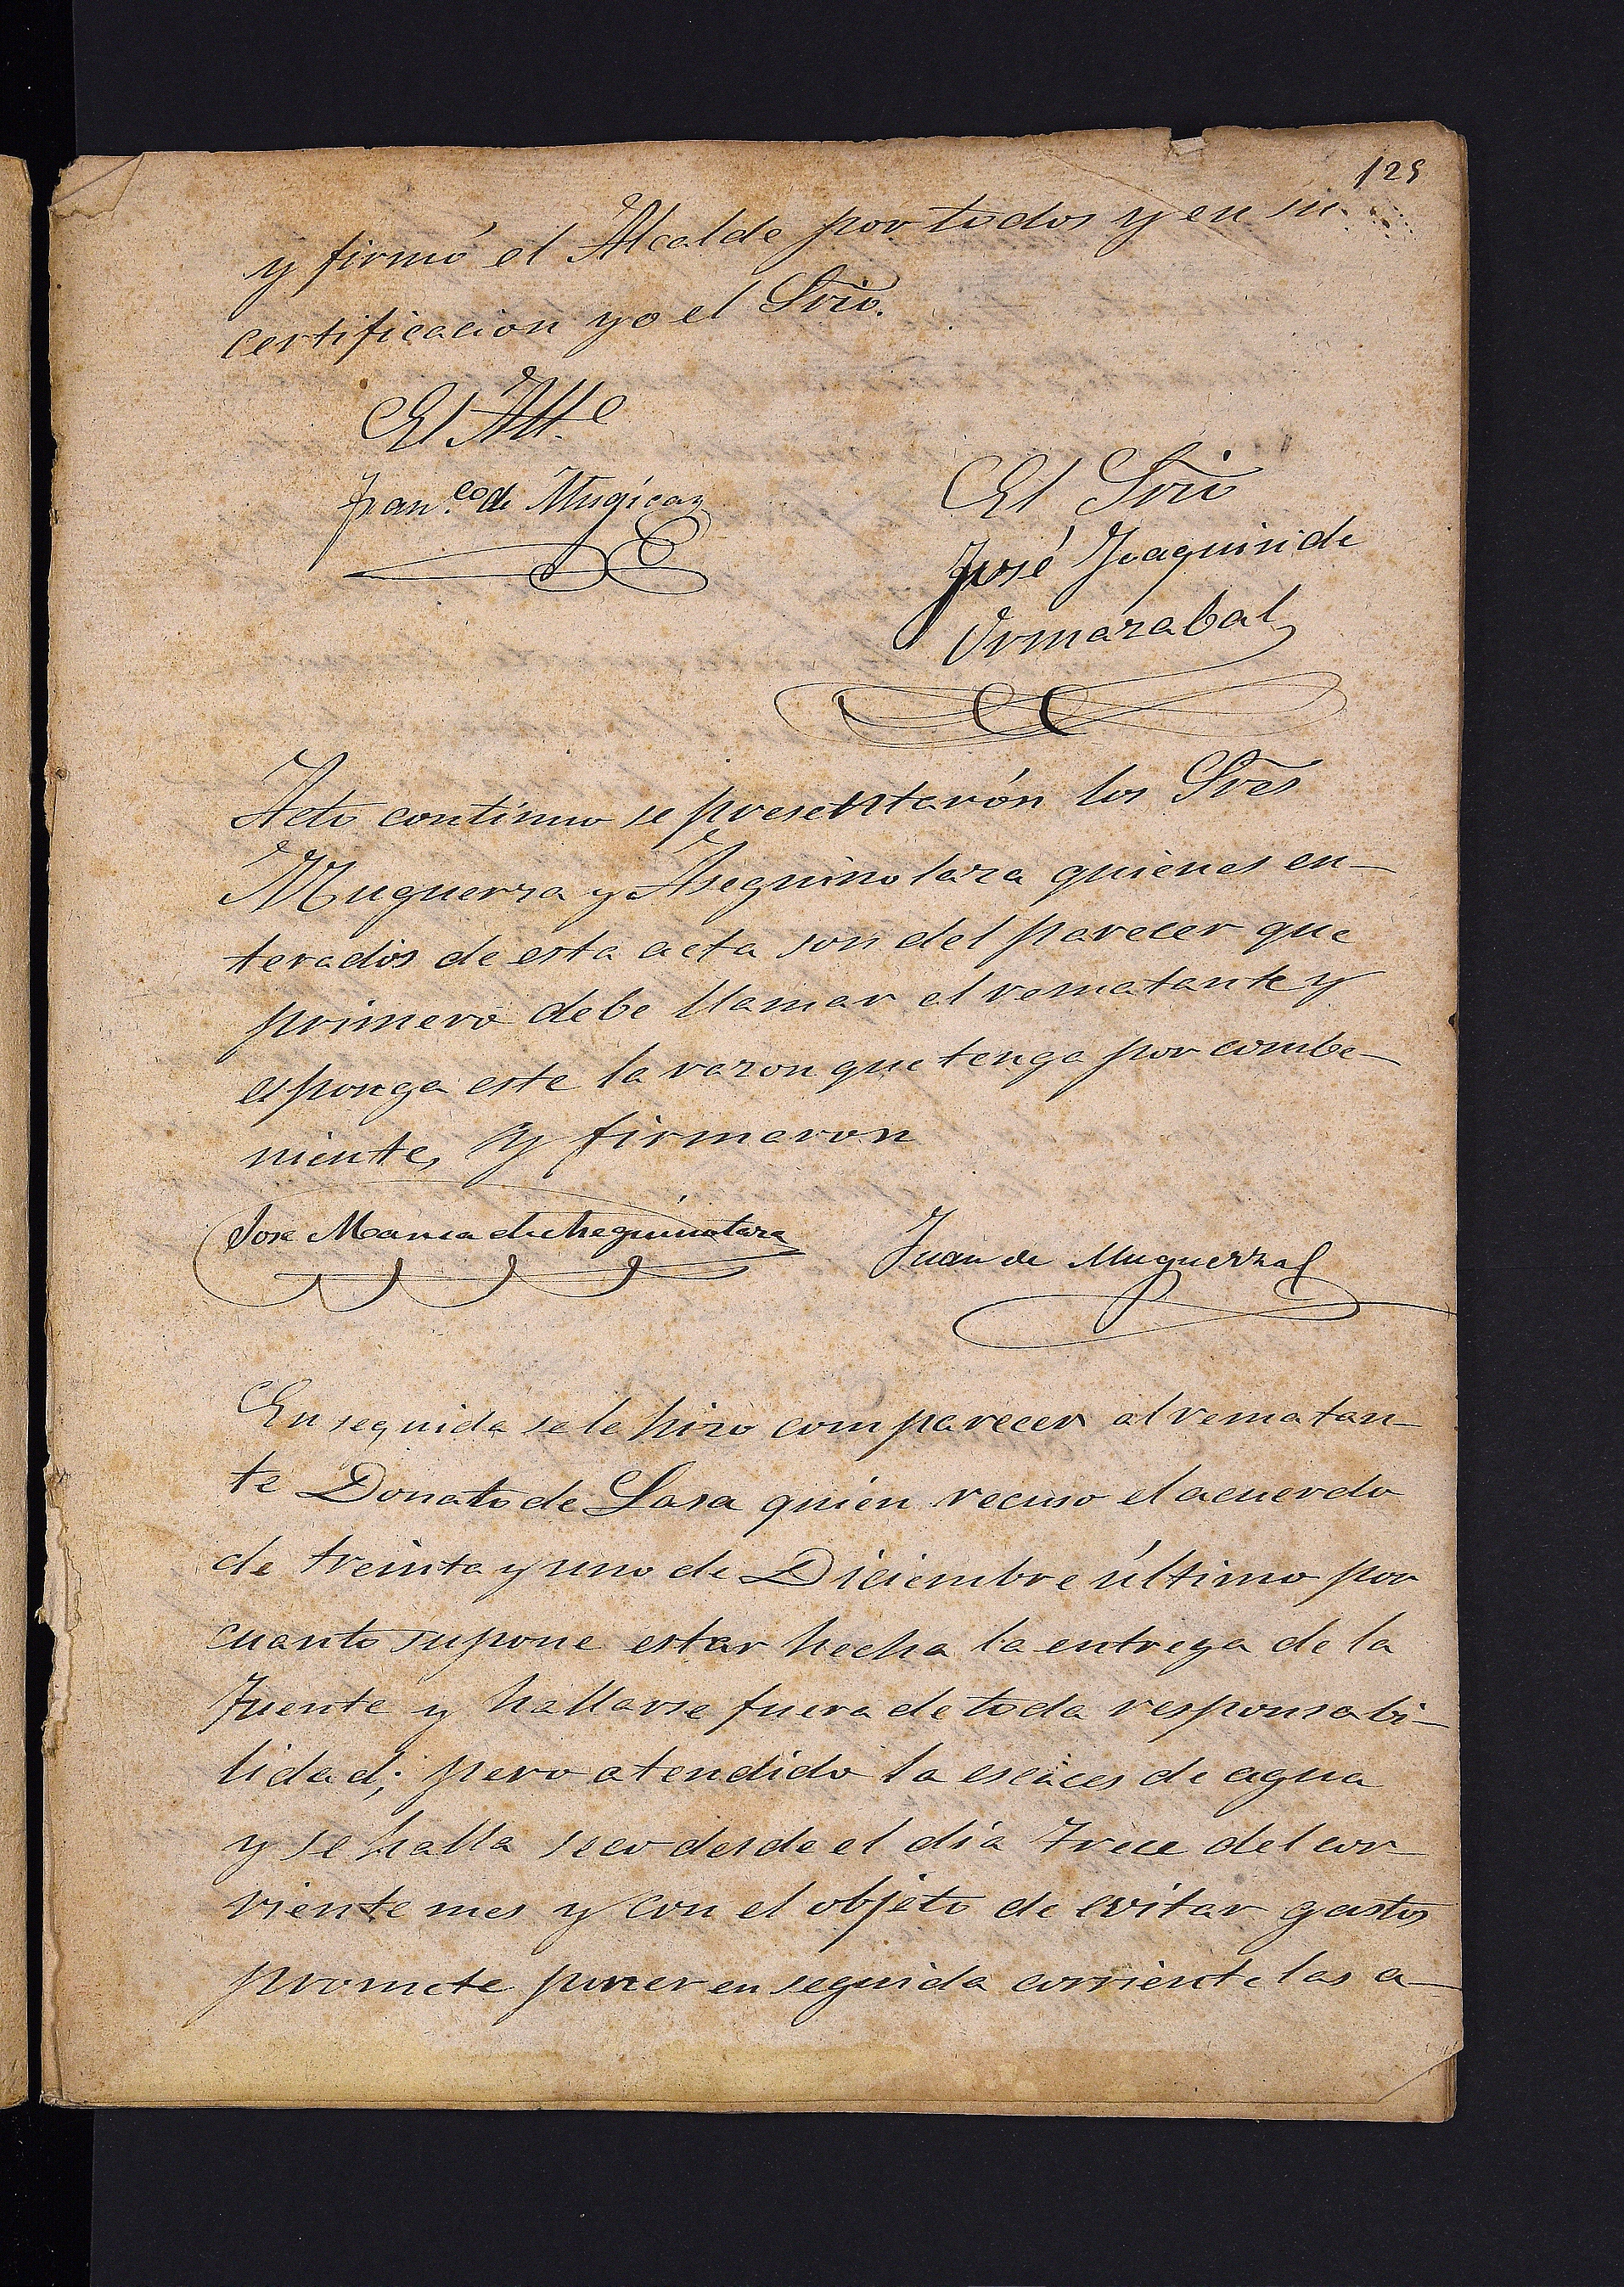 125
y firmó el Alcalde por todos y en su
certificacion yo el Srio.
El Alle
Franco de Mugica
El Srio
José Joaquin de
Ormazabal
Acto continuo se presentarón los Sres
Muguerza y Aseguinolaza quienes en-
terados de esta acta son del parecer que
primero debe llamar el rematante y
esponga este la razon que tenga por combe-
niente, y firmaron
Jose Maria de Aseguinolaza
Juan de Muguerza
En seguida se le hizo comparecer al rematan-
te Donato de Lasa quien recuso el acuerdo
de treinta y uno de Diciembre último por
cuanto supone estar hecha la entrega de la
Fuente y hallarse fuera de toda responsabi-
lidad; pero atendido la escaces de agua
y se halla seco desde el dia trece del cor
riente mes y con el objeto de evitar gastos
promete poner en seguida corriente las a-